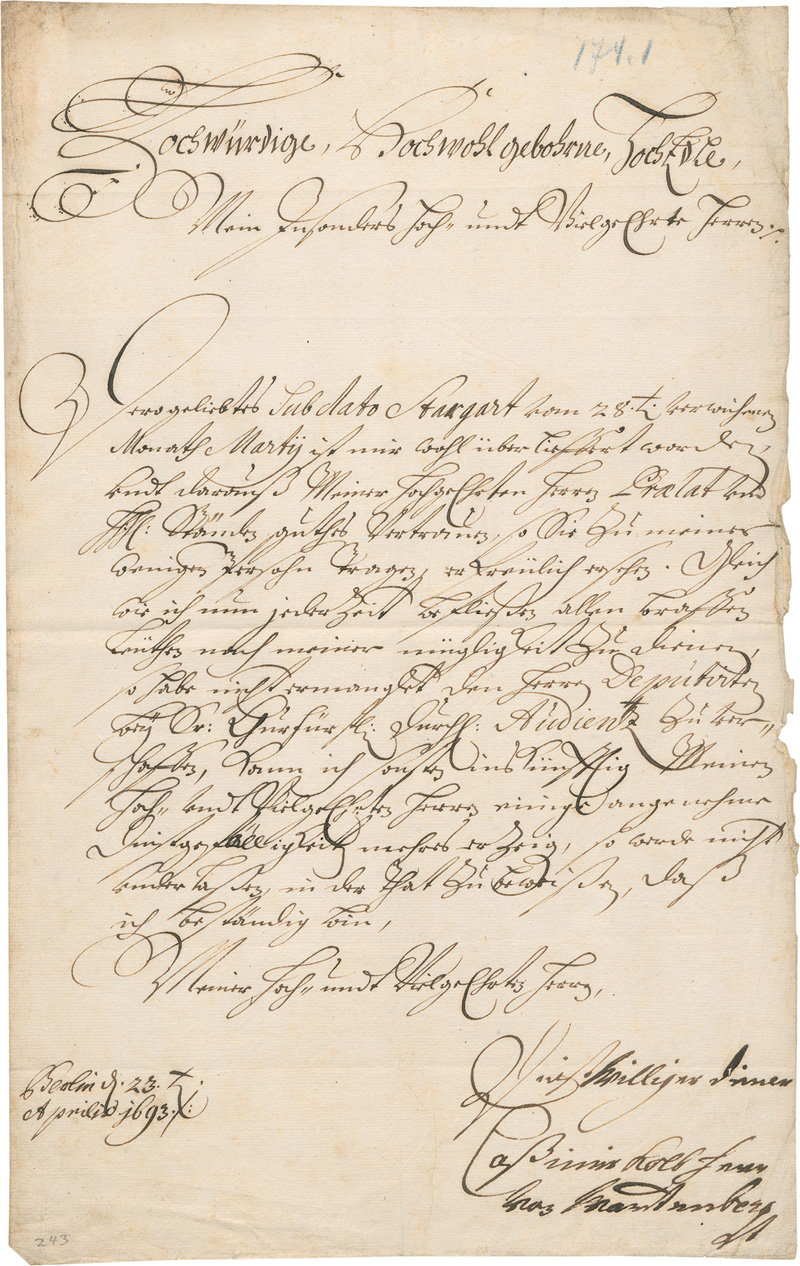 174.1
Hochwürdige, Hochwohlgebohrne, HochEdle,
Mein Insonders Hoch- undt Vielgeehrte Herren.
Derogeliebtes Sub dato Stargart vom 28.t: verwichenen
Monath Martij ist mir wohl überlieffert worden,
undt darauß Meiner Hochgeehrten Herren Prælat und
Ständen guthes Vertrauen, so Sie zu meiner
wenigen Persohn tragen, erfreülich ersehen. Gleich
wie ich nun jederzeit befließen allen braffen
Leüthen nach meiner mügligkeit zu dienen,
so habe nicht ermanglet den Herren Deputirten
bey Sr: Churfürstl: Durchl: Audientz zu ver-
schaffen, kann ich sonsten inskünfftig Meinen
Hoch- undt Vielgeehrten Herren einige angenehme
Dinstgefälligkeit mehres erzeig, so werde nicht
underlaßen, in der That zu beweißen, daß
ich beständig bin,
Meiner Hoch- undt Vielgeehrten Herrn,
Berlin d. 23.t:
Aprilis 1693.
Dinstwilliger diener
Caßimir Kolb herr
von Wartenberg
243